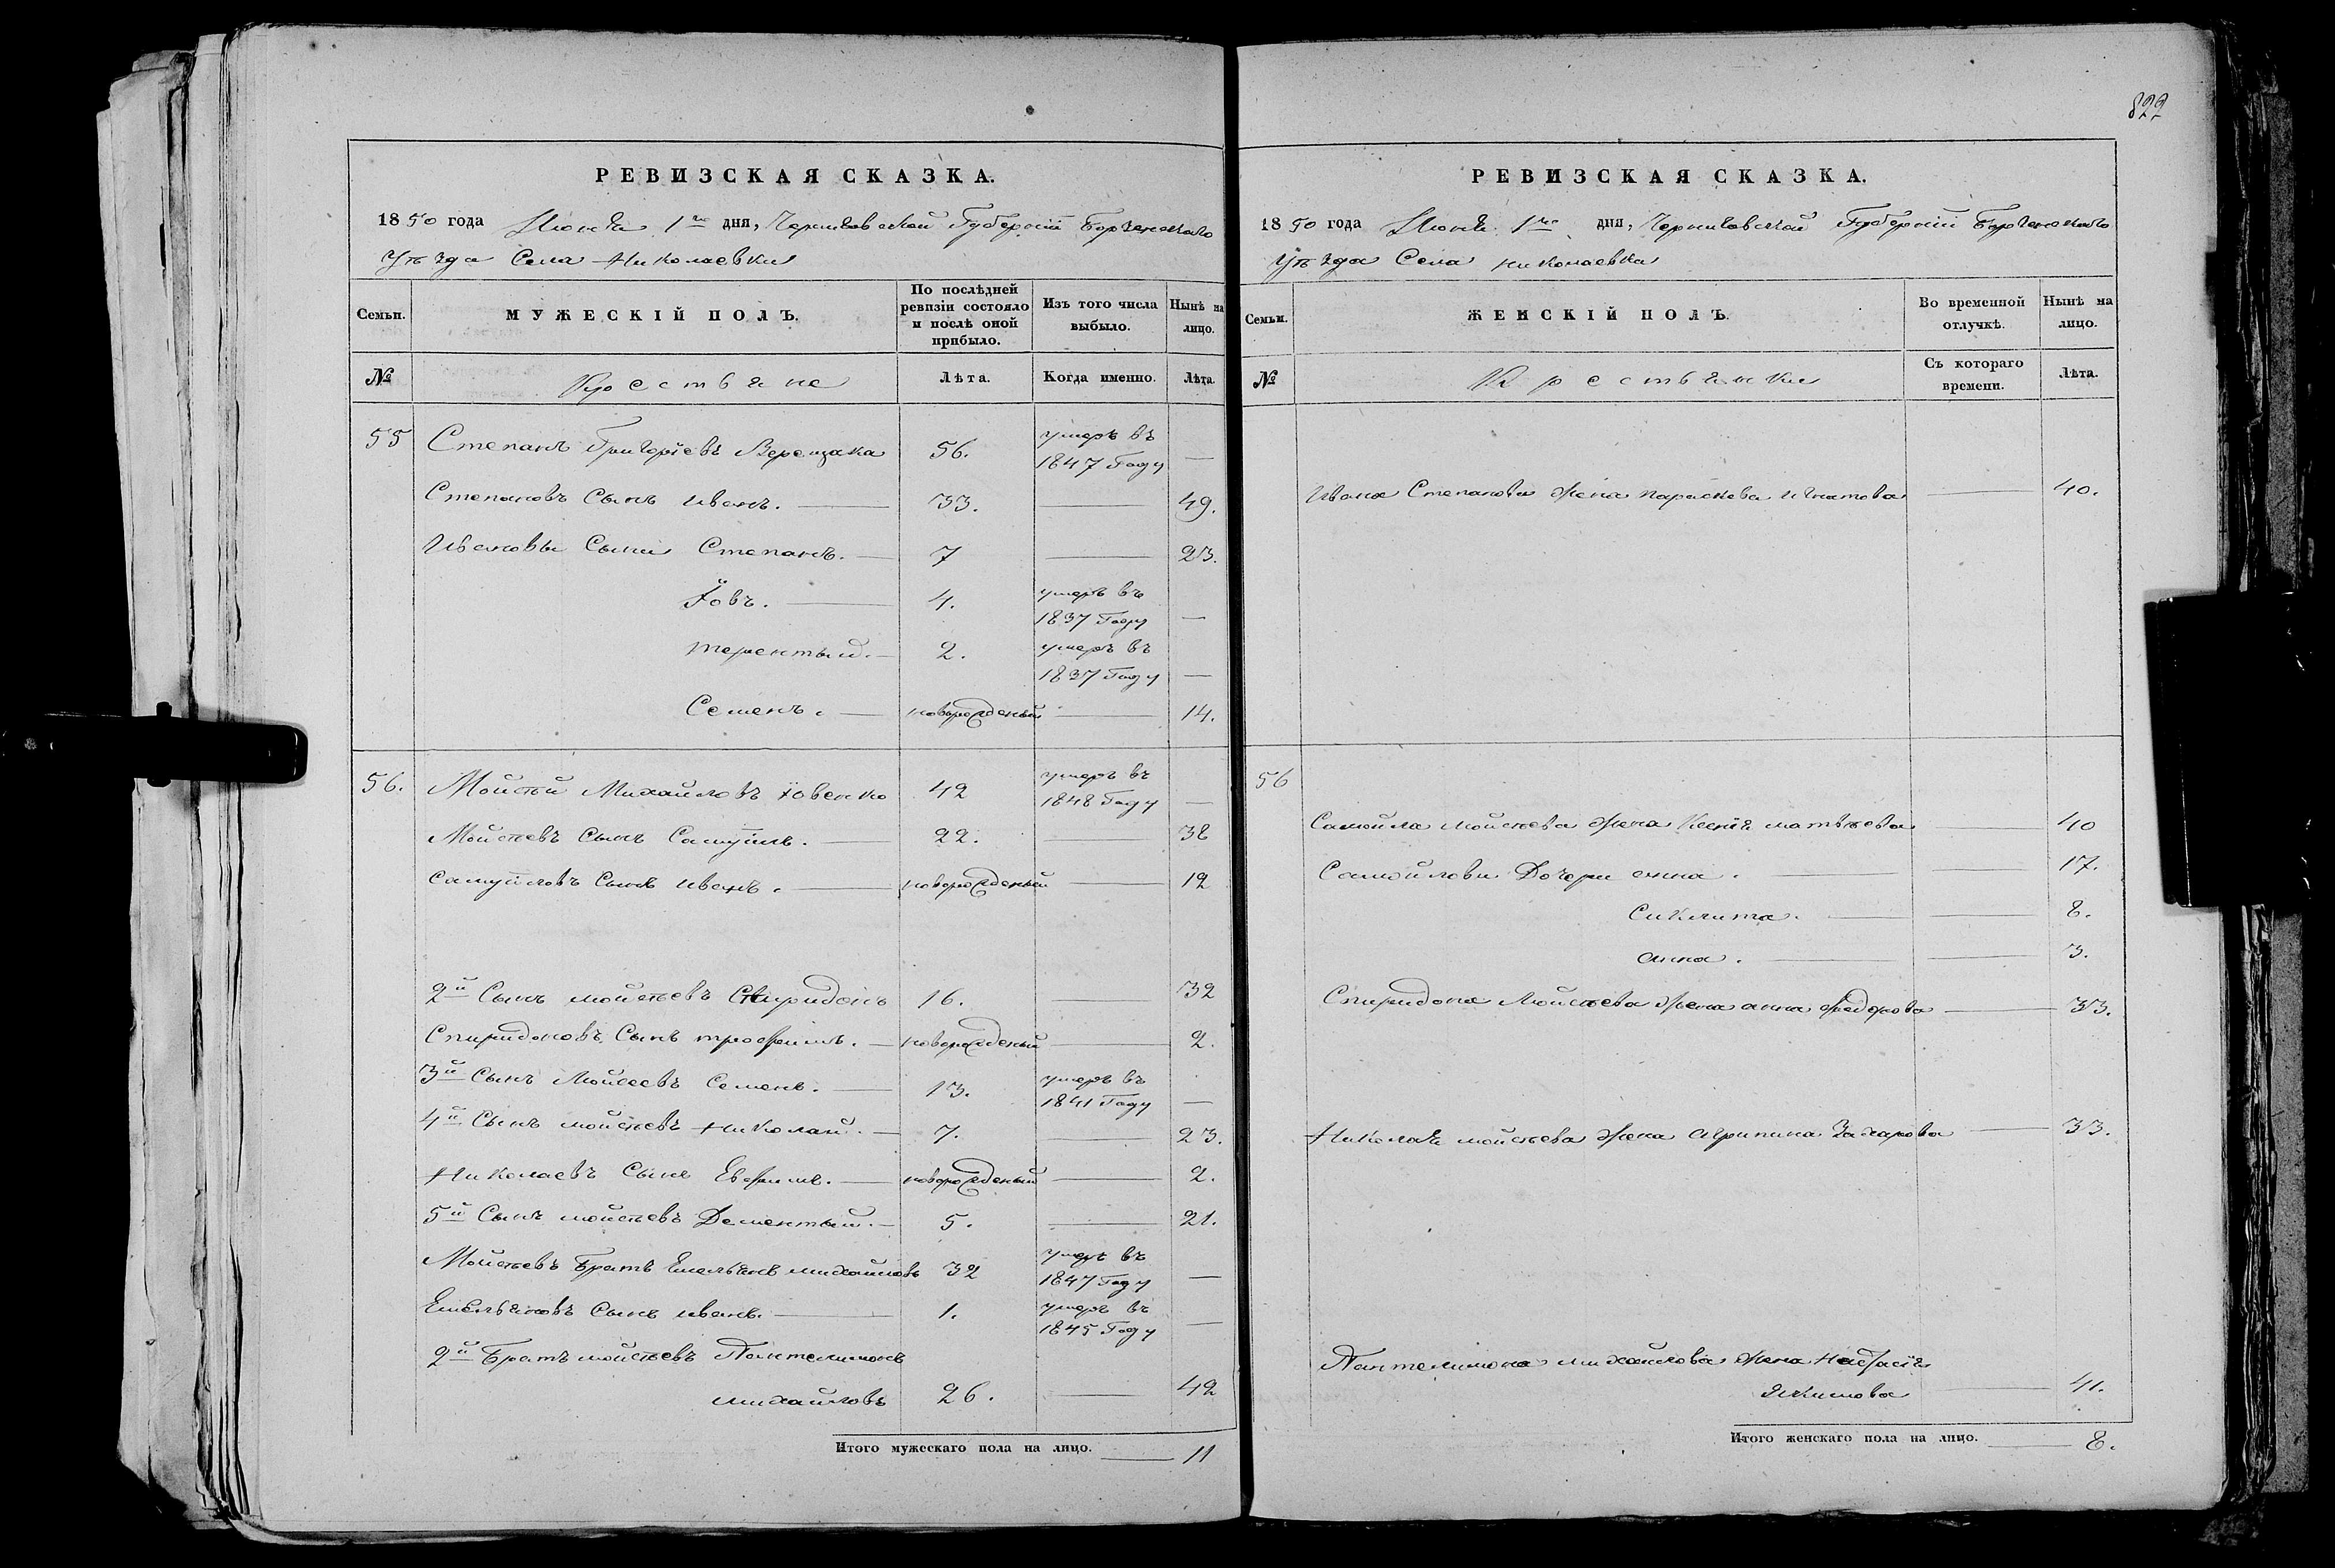 РЕВИЗСКАЯ СКАЗКА.
1850 года Июня 1го дня, Черниговской Губерніи Борзенскаго
уѣзда Села Николаевки
Семьи. МУЖЕСКІЙ ПОЛЪ. По послѣдней ревизіи состояло и послѣ оной прибыло. Изъ того числа выбыло. Нынѣ на лицо.
№ Крестьяне Лѣта. Когда именно. Лѣта.
55 Степанъ Григоріевъ Верещака 56. умеръ въ 1847 Году —
Степановъ Сынъ иванъ. — 33. — 49.
Ивановы Сыни Степанъ. — 7 — 23.
Іовъ. — 4. умеръ въ 1837 Году —
терентый. — 2. умеръ въ 1837 Году —
Семенъ. — новорожденый — 14.
56. Мойсѣй Михайловъ Іовенко 42 умеръ въ 1848 Году —
Мойсѣевъ Сынъ Самуилъ. — 22. — 38
Самуиловъ Сынъ иванъ. — новорожденый — 12
2й Сынъ мойсѣевъ Спиридонъ 16. 32
Спиридоновъ Сынъ трофимъ. — новорожденый — 2.
3й Сынъ Мойсеевъ Семенъ. — 13. умеръ въ 1841 Году —
4й Сынъ мойсѣевъ Николай. — 7. — 23.
Николаевъ Сынъ Евфимъ. — новорожденый — 2.
5й Сынъ мойсѣевъ Дементый. — 5. — 21.
Мойсѣевъ Братъ Емельянъ михайловъ 32 умеръ въ 1847 Году —
Емельяновъ Сынъ иванъ. — 1. умеръ въ 1845 Году —
2й Братъ мойсѣевъ Пантелимонъ
михайловъ 26. — 42
Итого мужескаго пола на лицо. — 11
822
РЕВИЗСКАЯ СКАЗКА.
1850 года Июня 1го дня, Черниговской Губерніи Борзенскаго
уѣзда Села николаевки
Семьи. ЖЕНСКІЙ ПОЛЪ. Во временной отлучкѣ. Нынѣ на лицо.
№ Крестьянки Съ котораго времени. Лѣта.
Ивана Степанова жена параскева игнатова — 40.
56
Самойла мойсѣева жена Ксенія матвѣева — 40
Самойлови Дочери анна. — — 17.
Сиклита. — — 8.
анна. — — 3.
Спиридона Мойсѣева жена анна федорова — 33.
Николая мойсѣева жена агрипина Захарова — 33.
Пантелимона михайлова жена настасія
якимова — 41.
Итого женскаго пола на лицо. — 8.